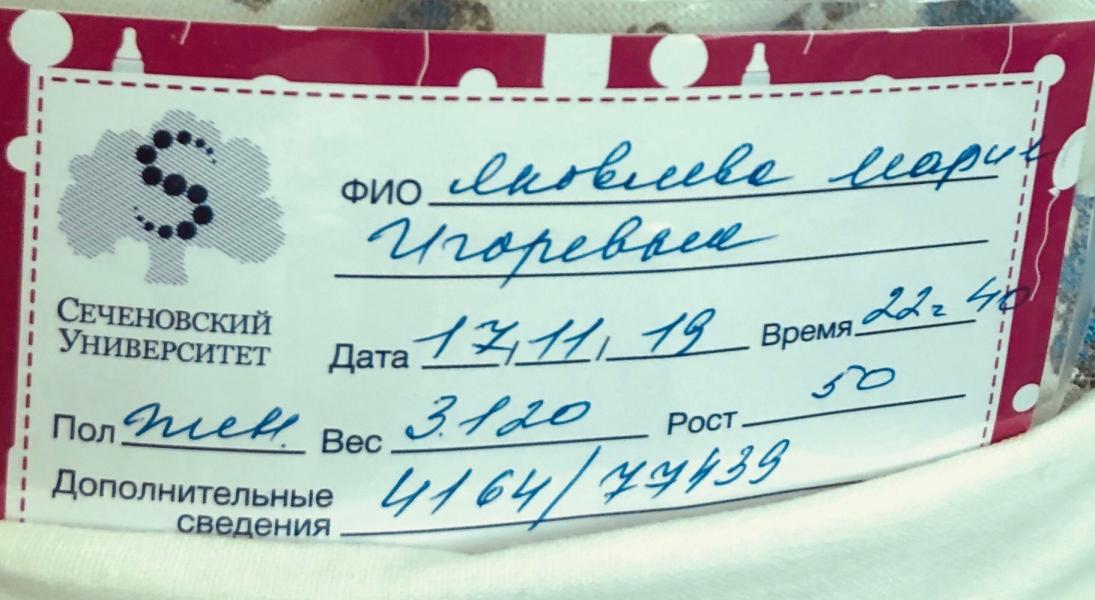 СЕЧЕНОВСКИЙ
УНИВЕРСИТЕТ
ФИО Яковлева Мария
Игоревна
Дата 17,11,19 Время 22ч 40
Пол жен. Вес 3.120 Рост 50
Дополнительные
сведения 4164/77439